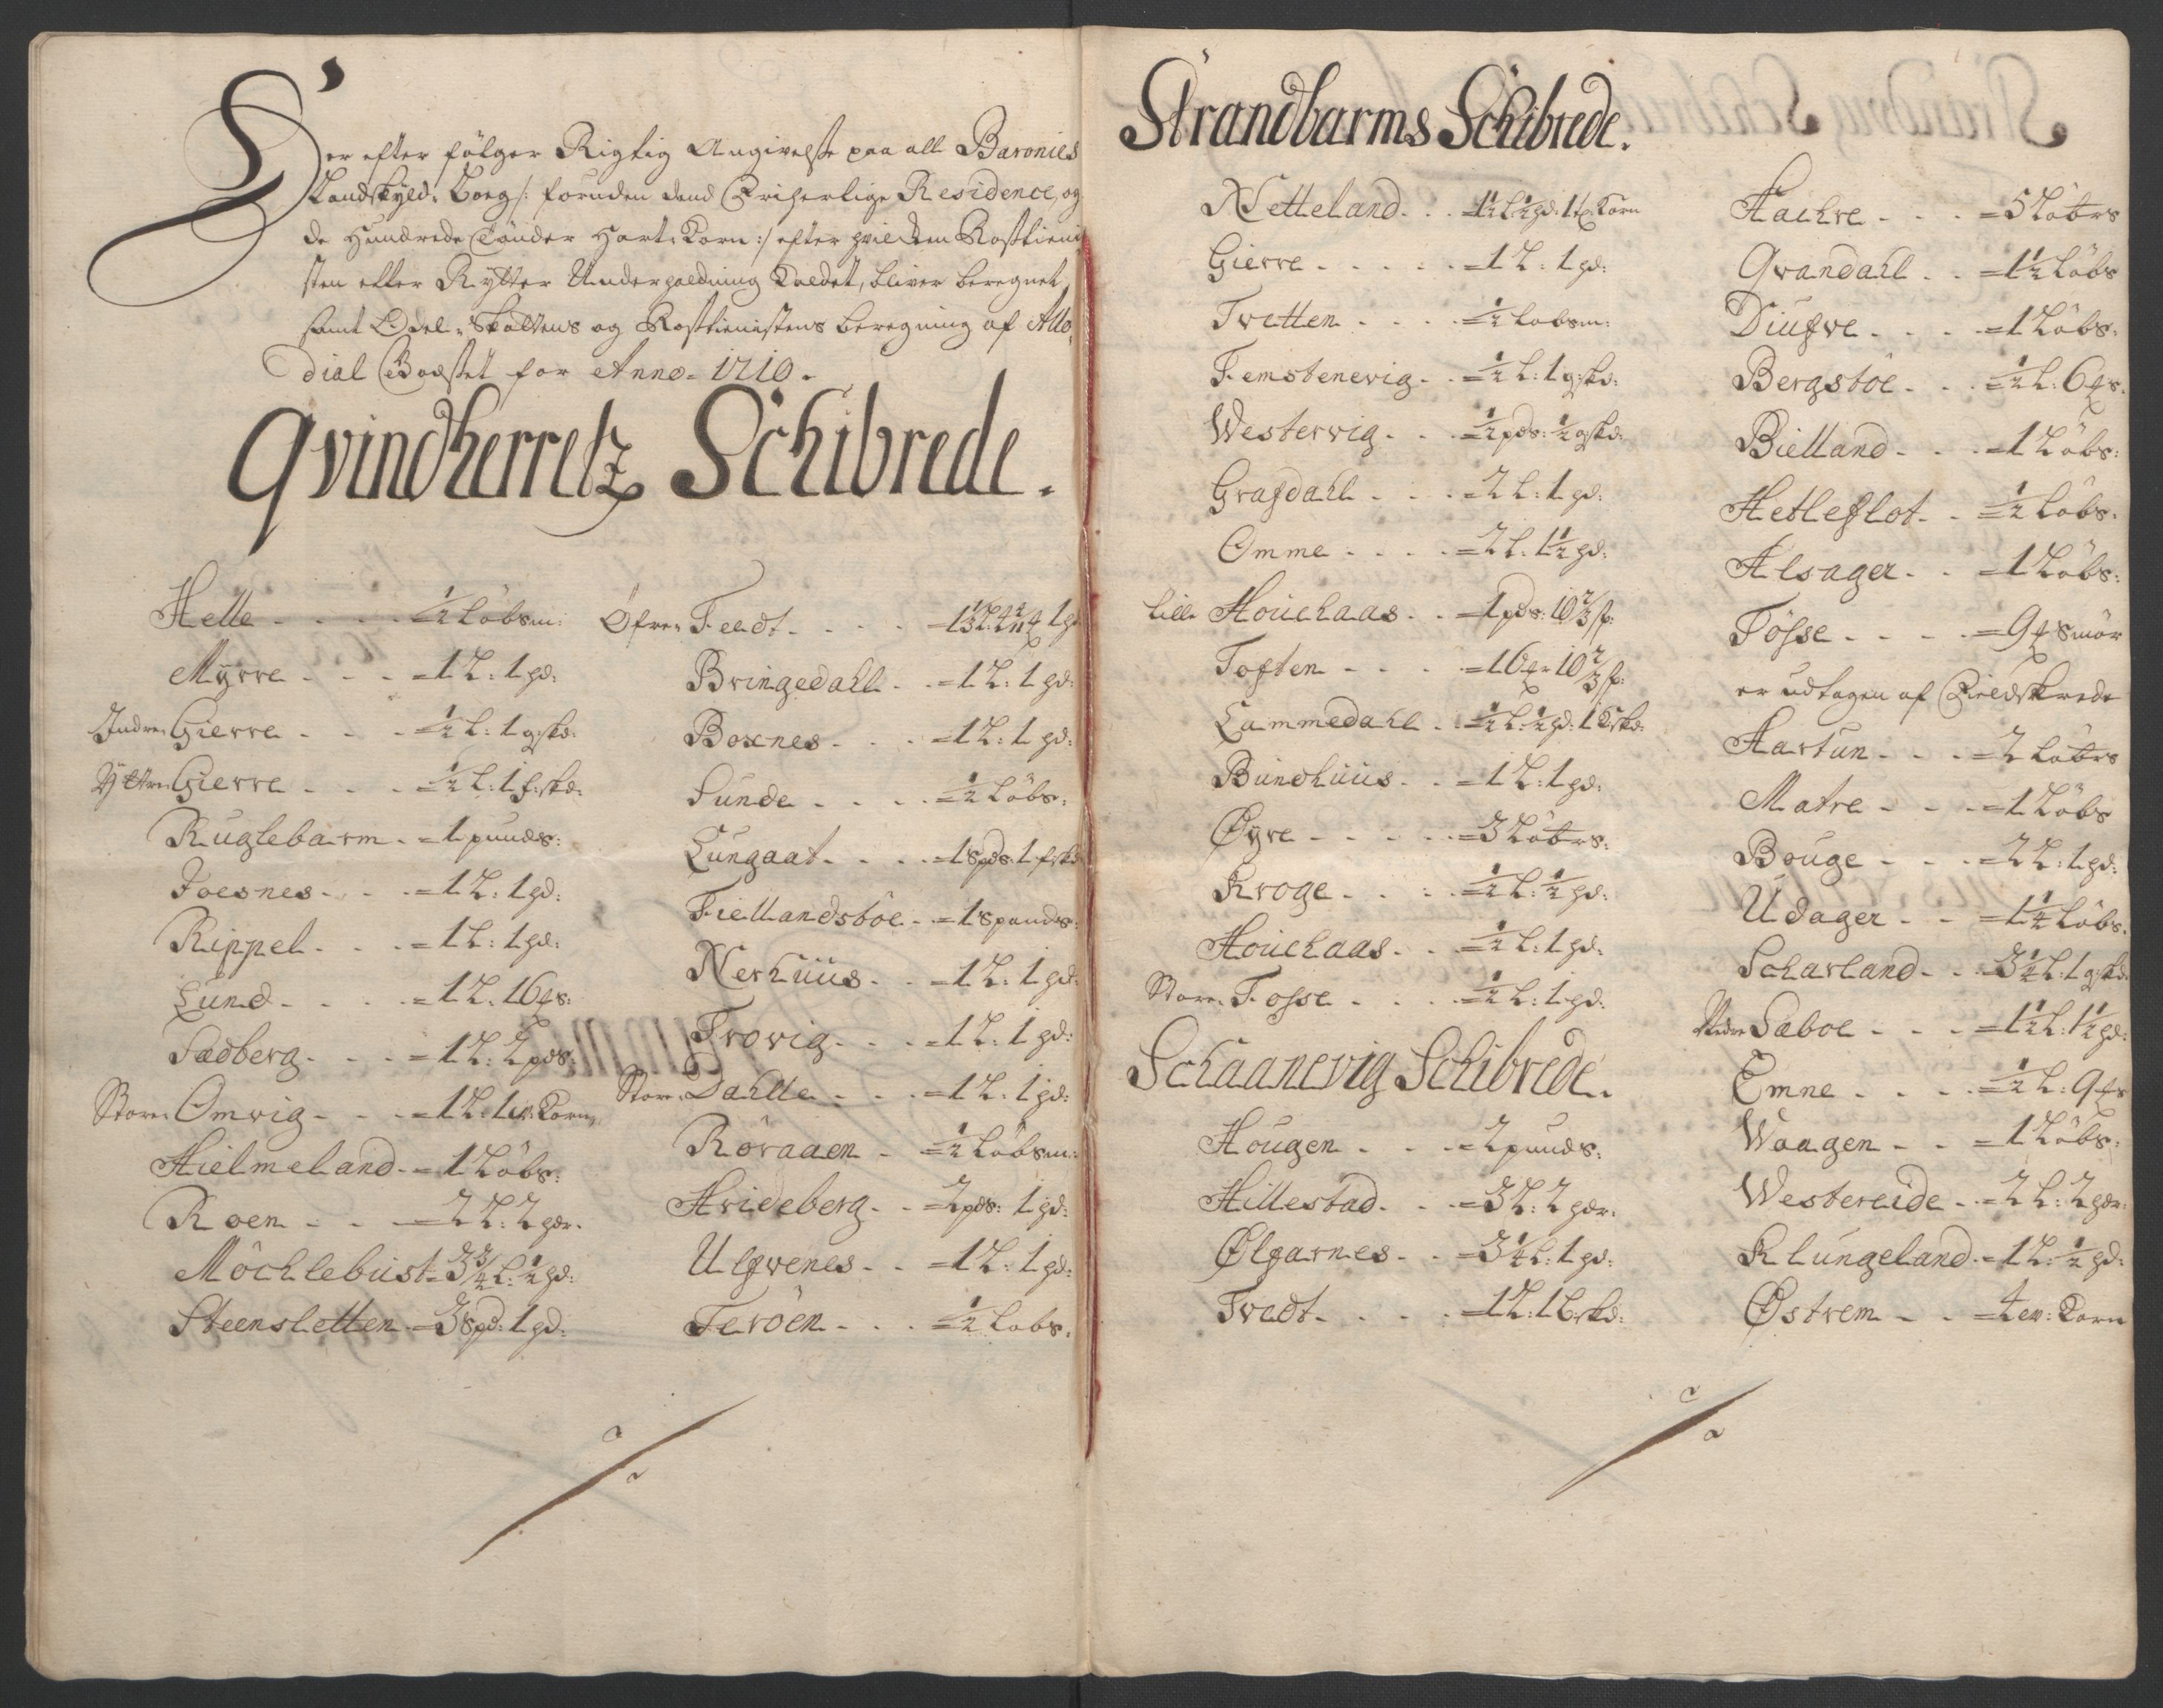 Her efter fölger Rigtig Angivelse paa all Baronies
Landskyld, Boeg /: foruden dend Friherlige Residence, og
de Hundrede Tönder Hart-Korn :/ efter hvilchen Rosttieni
sten eller Rytter Underholdning Kaldet, bliver beregnet,
samt Odel-Skattens og Rosttienistens beregning af Allo-
dial Godset for Anno 1710.
Qvindherretz Schibrede.
Helle - - - - = ½ Löbsm:
Myrre - - - = 1 L: 1 gd:
Indre Gierre - - - = ½ L: 1 g:skd:
Ytter Gierre - - - = ½ L: 1 f:skd:
Ruglebarm - = 1 punds:
Joesnes - - - = 1 L: 1 gd:
Rippel - - - = 1 L: 1 gd:
Lund - - - - = 1 L: 16 ꝗs:
Sædberg - - - = 1 L: 2 pds:
Store Omvig - - - = 1 L: 1 Korn
Hielmeland - = 1 Löbs:
Roen - - - = 2 L: 2 gdr.
Möchlebust = 3¾ L: ½ gd:
Steensletten = 3 spd: 1 gd:
Öfre Feedt - - - -
Bringedahl - - = 1 L: 1 gd:
Boxnes - - - = 1 L: 1 gd:
Sunde - - - - = ½ Löbs:
Lungaat - - - = 1 Spds: 1 f:skd
Fiellandsböe - = 1 Spunds:
Nerhuus - - = 1 L: 1 gd:
Trovig - - - = 1 L: 1 gd:
Store Dahlle - - - = 1 L: 1 gd:
Röraaen - = ½ Löbsm:
Hvideberg - - = 2 pds: 1 gd:
Ulfvenes - - = 1 L: 1 gd:
Teröen - - - = ½ Löbs.
Strandbarms Schibrede.
Netteland - - = 1½ L: ½ gd: 1 Korn
Gierre - - - - - = 1 L: 1 gd:
Tvetten - - - - = ½ Löbsm:
Femstenevig - - = ½ L: 1 g:skd:
Westervig - - = ½ pds: ½ gskd:
Grafdahl - - - = 2 L: 1 gd:
Omme - - - - = 2 L: 1½ gd:
Lille Houchaas - - = 1 pds: 10⅔ ꝗ:
Toften - - - - = 16 10⅔ ꝗ:
Lammedahl - = ½ L: ½ gd: 1 skd:
Bundhuus - - = 1 L: 1 gd:
Øyre - - - - - = 3 Löbrs:
Kroge - - - - = ½ L: ½ gd:
Houchaas - - = ½ L: 1 gd:
Store Fosse - - - - = ½ L: 1 gd:
Schaanevig Schibrede.
Hougen - - - = 2 punds:
Hillestad - - - = 3 L: 2 gdr:
Ølfarnes - - = 3¼ L: 1 gd:
Tvedt - - - - = 1 L: 1 B:skd:
Aachre - - - = 5 Löbrs
Qvandahl - - = 1½ Löbs
Diufve - - - - = 1 Löbs:
Bergstöe - - - = ½ L: 6 ꝗs.
Bielland - - - = 1 Löbs:
Hetleflot - - = ½ Löbs:
Alsager - - = 1 Löbs:
Tösse - - - - = 9 ꝗ Smör
er udtagen af Fieldskrede
Aartun - - - = 2 Löbrs
Matre - - - = 1 Löbs
Bouge - - - = 2 L: 1 gd:
Udager - - = 1¼ Löbs.
Scharland - - = 3¼ L: 1 gskd:
Nedre Sæboe - - - = 1½ L: 1½ gd:
Emne - - - - = ½ L: 9 ꝗs
Waagen - - = 1 Löbs:
Westereide - - = 2 L: 2 gdr:
Klungeland - = 1 L: ½ gd:
Østrem - - = 4 Korn